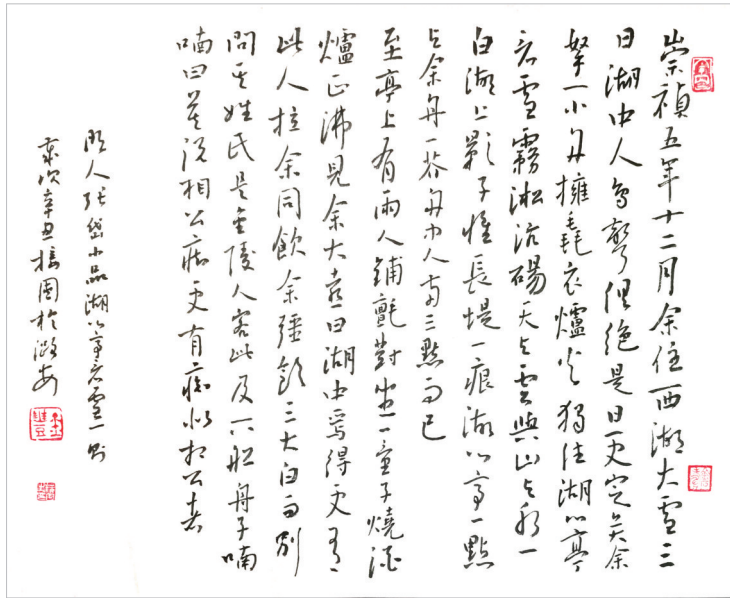 崇禎五年十二月余住西湖大雪三
日湖中人鳥聲俱絕是日更定矣余
拏一小舟擁毳衣爐火獨往湖心亭
看雪霧淞沆碭天與雲與山與水一
白湖上影子惟長堤一痕湖心亭一點
與余舟一芥舟中人兩三點而已
至亭上有兩人鋪氈對坐一童子燒酒
爐正沸見余大喜曰湖中焉得更有
此人拉余同飲余強飲三大白而別
問其姓氏是金陵人客此及下船舟子喃
喃曰莫說相公痴更有痴似相公者
明人張岱小品湖心亭看雪一則
歲次辛丑於潞安